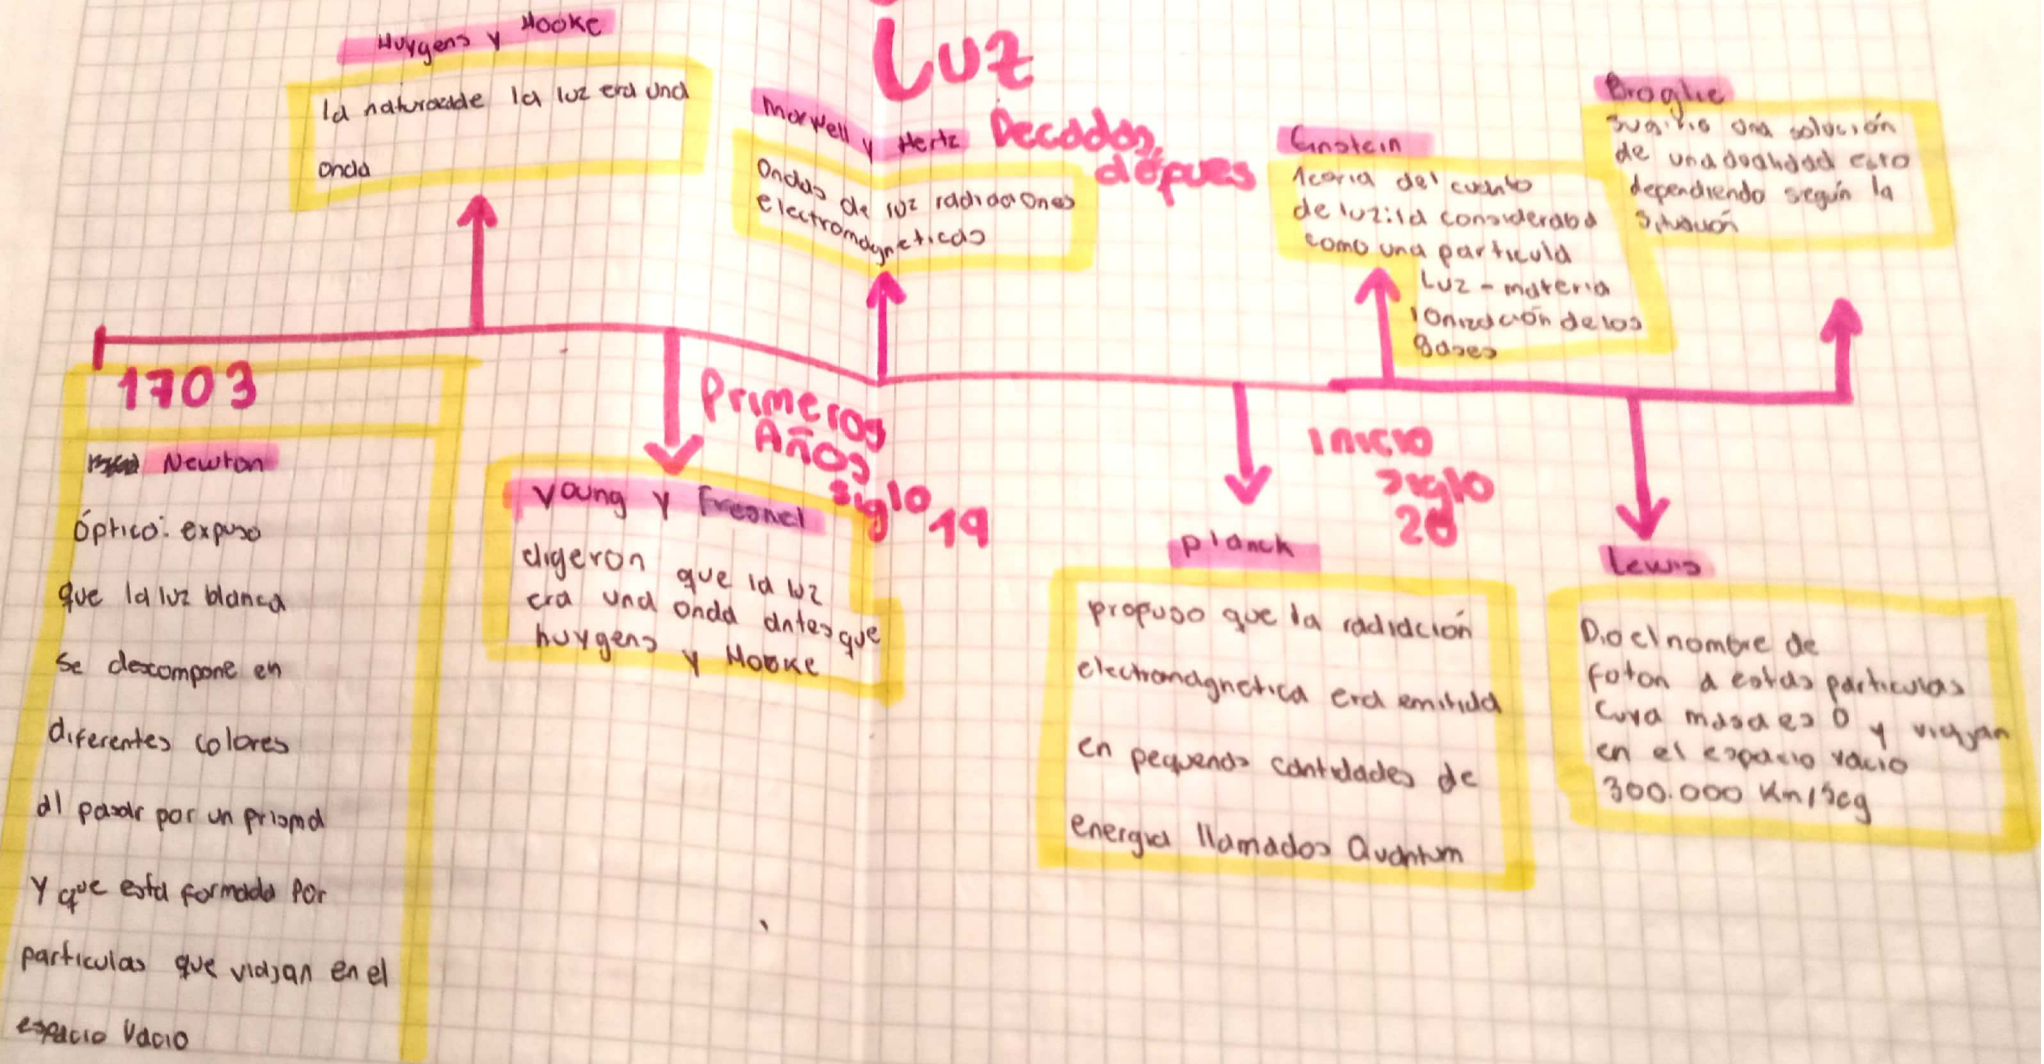 Luz
Huygens y Hooke
la naturadde la luz era una
onda
Maxwell y Hertz
Decadas
dépues
Ondas de luz radiaciones
electromagneticas
Einstein
del cuanto
de luz: la consideraba
como una particula
Luz - materia
ionización de los
gases
Broglie
una solución
de una dualidad esto
dependiendo según la
situación
1703
Newton
óptico: expuso
que la luz blanca
se descompone en
diferentes colores
al pasar por un prisma
y que esta formada por
particulas que viajan en el
espacio vacio
Primeros
Años
siglo
19
Young y Fresnel
digeron que la luz
era una onda antes que
huygens y Hooke
Inicio
siglo
20
planck
propuso que la radiación
electromagnetica era emitida
en pequenas cantidades de
energia llamados Quantum
Lewis
Dio el nombre de
foton a estas particulas
cuya masa es 0 y viajan
en el espacio vacio
300.000 Km/seg